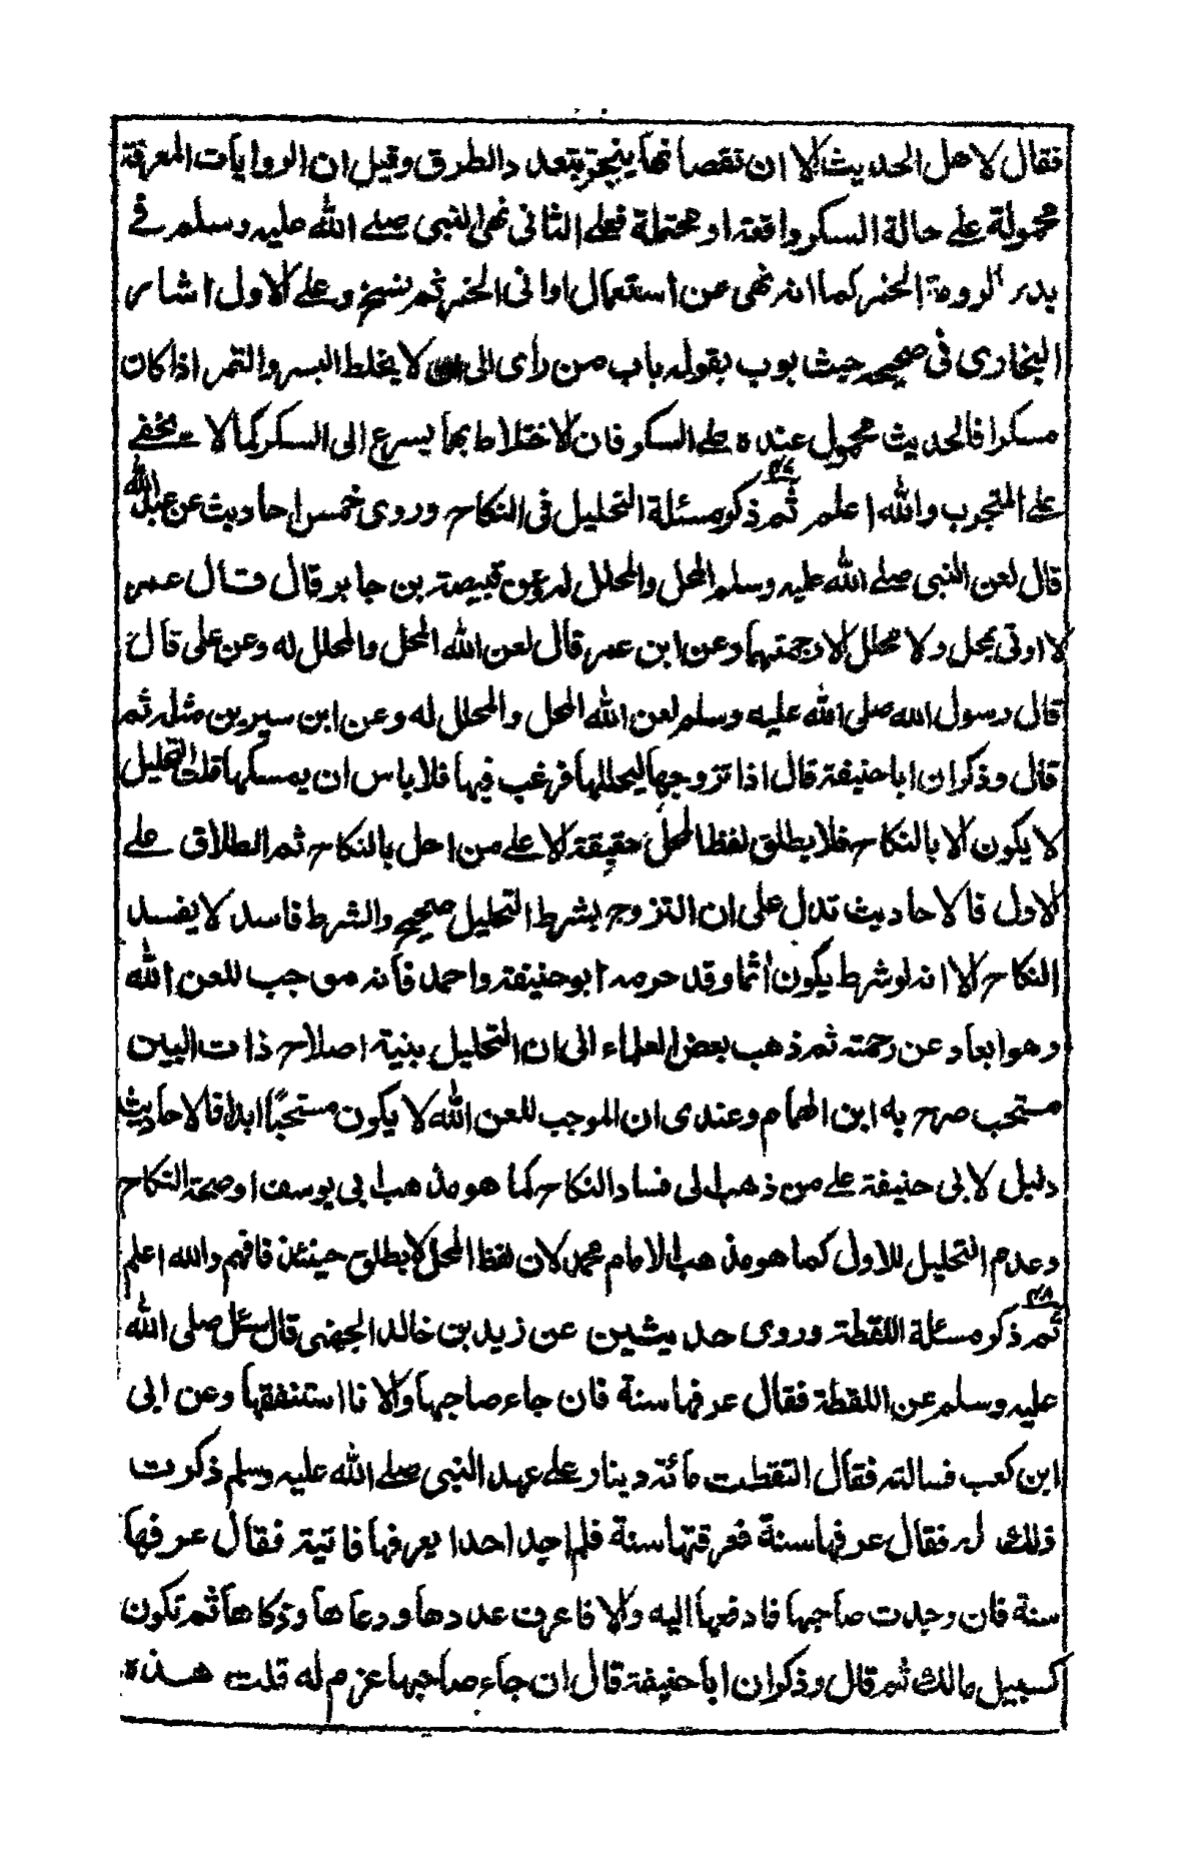 فقال لاهل الحديث الا ان نقصانها ينجبر بتعدد الطرق وقيل ان الروايات المعرفة
محمولة على حالة السكر واقعة او محتملة فعلى الثانى نهى النبى صلے الله عليه وسلم فى
بدء لرومة الخمر كما انه نهى عن استعمال اوانى الخمر ثم نسخ وعلى الاول اشار
البخارى فى صحيحه حيث بوب بقوله باب من رأى ان لا يخلط البسر والتمر اذا كان
مسكرا فالحديث محمول عنده على السكر فان الاختلاط بها يسرع الى السكر كما لا يخفى
على المتجرب والله اعلم ثم ذكر مسئلة التحليل فى النكاح وروى خمس احاديث عن عبد الله
قال لعن النبى صلے الله عليه وسلم المحل والمحلل له وعن قبيصة بن جابر قال قال عمر
لا اوتى بمحل ولا محلل الا رجمتهما وعن ابن عمر قال لعن الله المحل والمحلل له وعن على قال
قال رسول الله صلى الله عليه وسلم لعن الله المحل والمحلل له وعن ابن سيرين مثله ثم
قال وذكر ان ابا حنيفة قال اذا تزوجها ليحللها فرغب فيها فلا باس ان يمسكها قلت التحليل
لا يكون الا بالنكاح فلا يطلق لفظ المحل حقيقة الا على من احل بالنكاح ثم الطلاق على
الاول فالاحاديث تدل على ان التزوج بشرط التحليل صحيح والشرط فاسد لا يفسد
النكاح الا انه لو شرط يكون اثما وقد حرمه ابو حنيفة واحمد فانه موجب للعن الله
وهو ابعاد عن رحمته ثم ذهب بعض العلماء الى ان التحليل بنية اصلاح ذات البين
مستحب صرح به ابن الهمام وعندى ان الموجب للعن الله لا يكون مستحبًا ابدا فالاحاديث
دليل لابى حنيفة على من ذهب الى فساد النكاح كما هو مذهب ابى يوسف او صحة النكاح
وعدم التحليل للاول كما هو مذهب الامام محمد لان لفظ المحل لا يطلق حينئذ فافهم والله اعلم
ثم ذكر مسئلة اللقطة وروى حديثين عن زيد بن خالد الجهنى قال سئل صلى الله
عليه وسلم عن اللقطة فقال عرفها سنة فان جاء صاحبها والا فاستنفقها وعن ابى
ابن كعب فسالته فقال التقطت مائة دينار على عهد النبى صلے الله عليه وسلم ذكرت
ذلك له فقال عرفها سنة فعرفتها سنة فلم اجد احدا يعرفها فاتيته فقال عرفها
سنة فان وجدت صاحبها فادفعها اليه والا فاعرف عددها ووعاها ووكاها ثم تكون
كسبيل مالك ثم قال وذكر ان ابا حنيفة قال ان جاء صاحبها غرم له قلت هذه